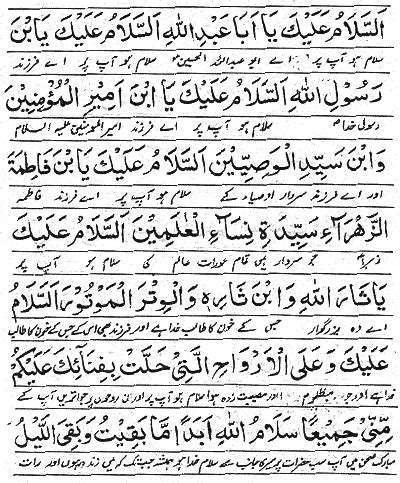 اَلسَّلَامُ عَلَيْكَ يَا اَبَا عَبْدِ اللهِ اَلسَّلَامُ عَلَيْكَ يَابْنَ
سلام ہو آپ پر اے ابو عبداللہ الحسینؑ سلام ہو آپ پر اے فرزند
رَسُوْلِ اللهِ اَلسَّلَامُ عَلَيْكَ يَا ابْنَ اَمِيْرِ الْمُؤْمِنِيْنَ
رسول خدا سلام ہو آپ پر اے فرزند امیرالمومنین علیہ السلام
وَابْنَ سَيِّدِ الْوَصِيِّيْنَ اَلسَّلَامُ عَلَيْكَ يَابْنَ فَاطِمَةَ
اور اے فرزند سردار اوصیاء کے سلام ہو آپ پر اے فرزند فاطمہ
الزَّهْرَآءِ سَيِّدَةِ نِسَآءِ الْعٰلَمِيْنَ اَلسَّلَامُ عَلَيْكَ
زہرا جو سردار ہیں تمام عورات عالم کی سلام ہو آپ پر
يَاثَارَ اللهِ وَابْنَ ثَارِهٖ وَالْوِتْرَ الْمَوْتُوْرَ اَلسَّلَامُ
اے وہ بزرگوار جس کے خون کا طالب خدا ہے اور فرزند اس کے جس کے خون کا طالب
عَلَيْكَ وَعَلَى الْاَرْوَاحِ الَّتِيْ حَلَّتْ بِفِنَآئِكَ عَلَيْكُمْ
خدا ہے اور مظلوم اور مصیبت زدہ ہو سلام ہو آپ پر اور ان روحوں پر جو اتریں آپ کے
مِنِّيْ جَمِيْعًا سَلَامُ اللهِ اَبَدًا مَّا بَقِيْتُ وَبَقِيَ اللَّيْلُ
صحن میں آپ سب حضرات پر میری جانب سے سلام خدا ہو ہمیشہ جب تک کہ میں زندہ رہوں اور رات